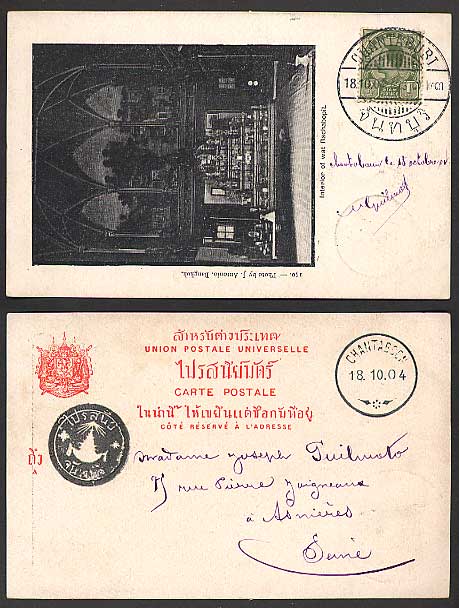 CHANTABURI
18.10.04
จันทบุรี
Interior of wat Rachabopit.
Chantaboun le 18 octobre 04
Guilmoto
150. — Photo by J. Antonio, Bangkok.
สำหรับต่างประเทศ
UNION POSTALE UNIVERSELLE
ไปรสนิยบัตร์
CARTE POSTALE
ในน่านี้ ให้เขียนแต่ชื่อกับที่อยู่
CÔTÉ RÉSERVÉ À L'ADRESSE
CHANTABOON
18.10.04
ไปรสนีย์
ถึง
Madame Joseph Guilmoto
15 rue Pierre Joigneaux
à Asnières
Seine